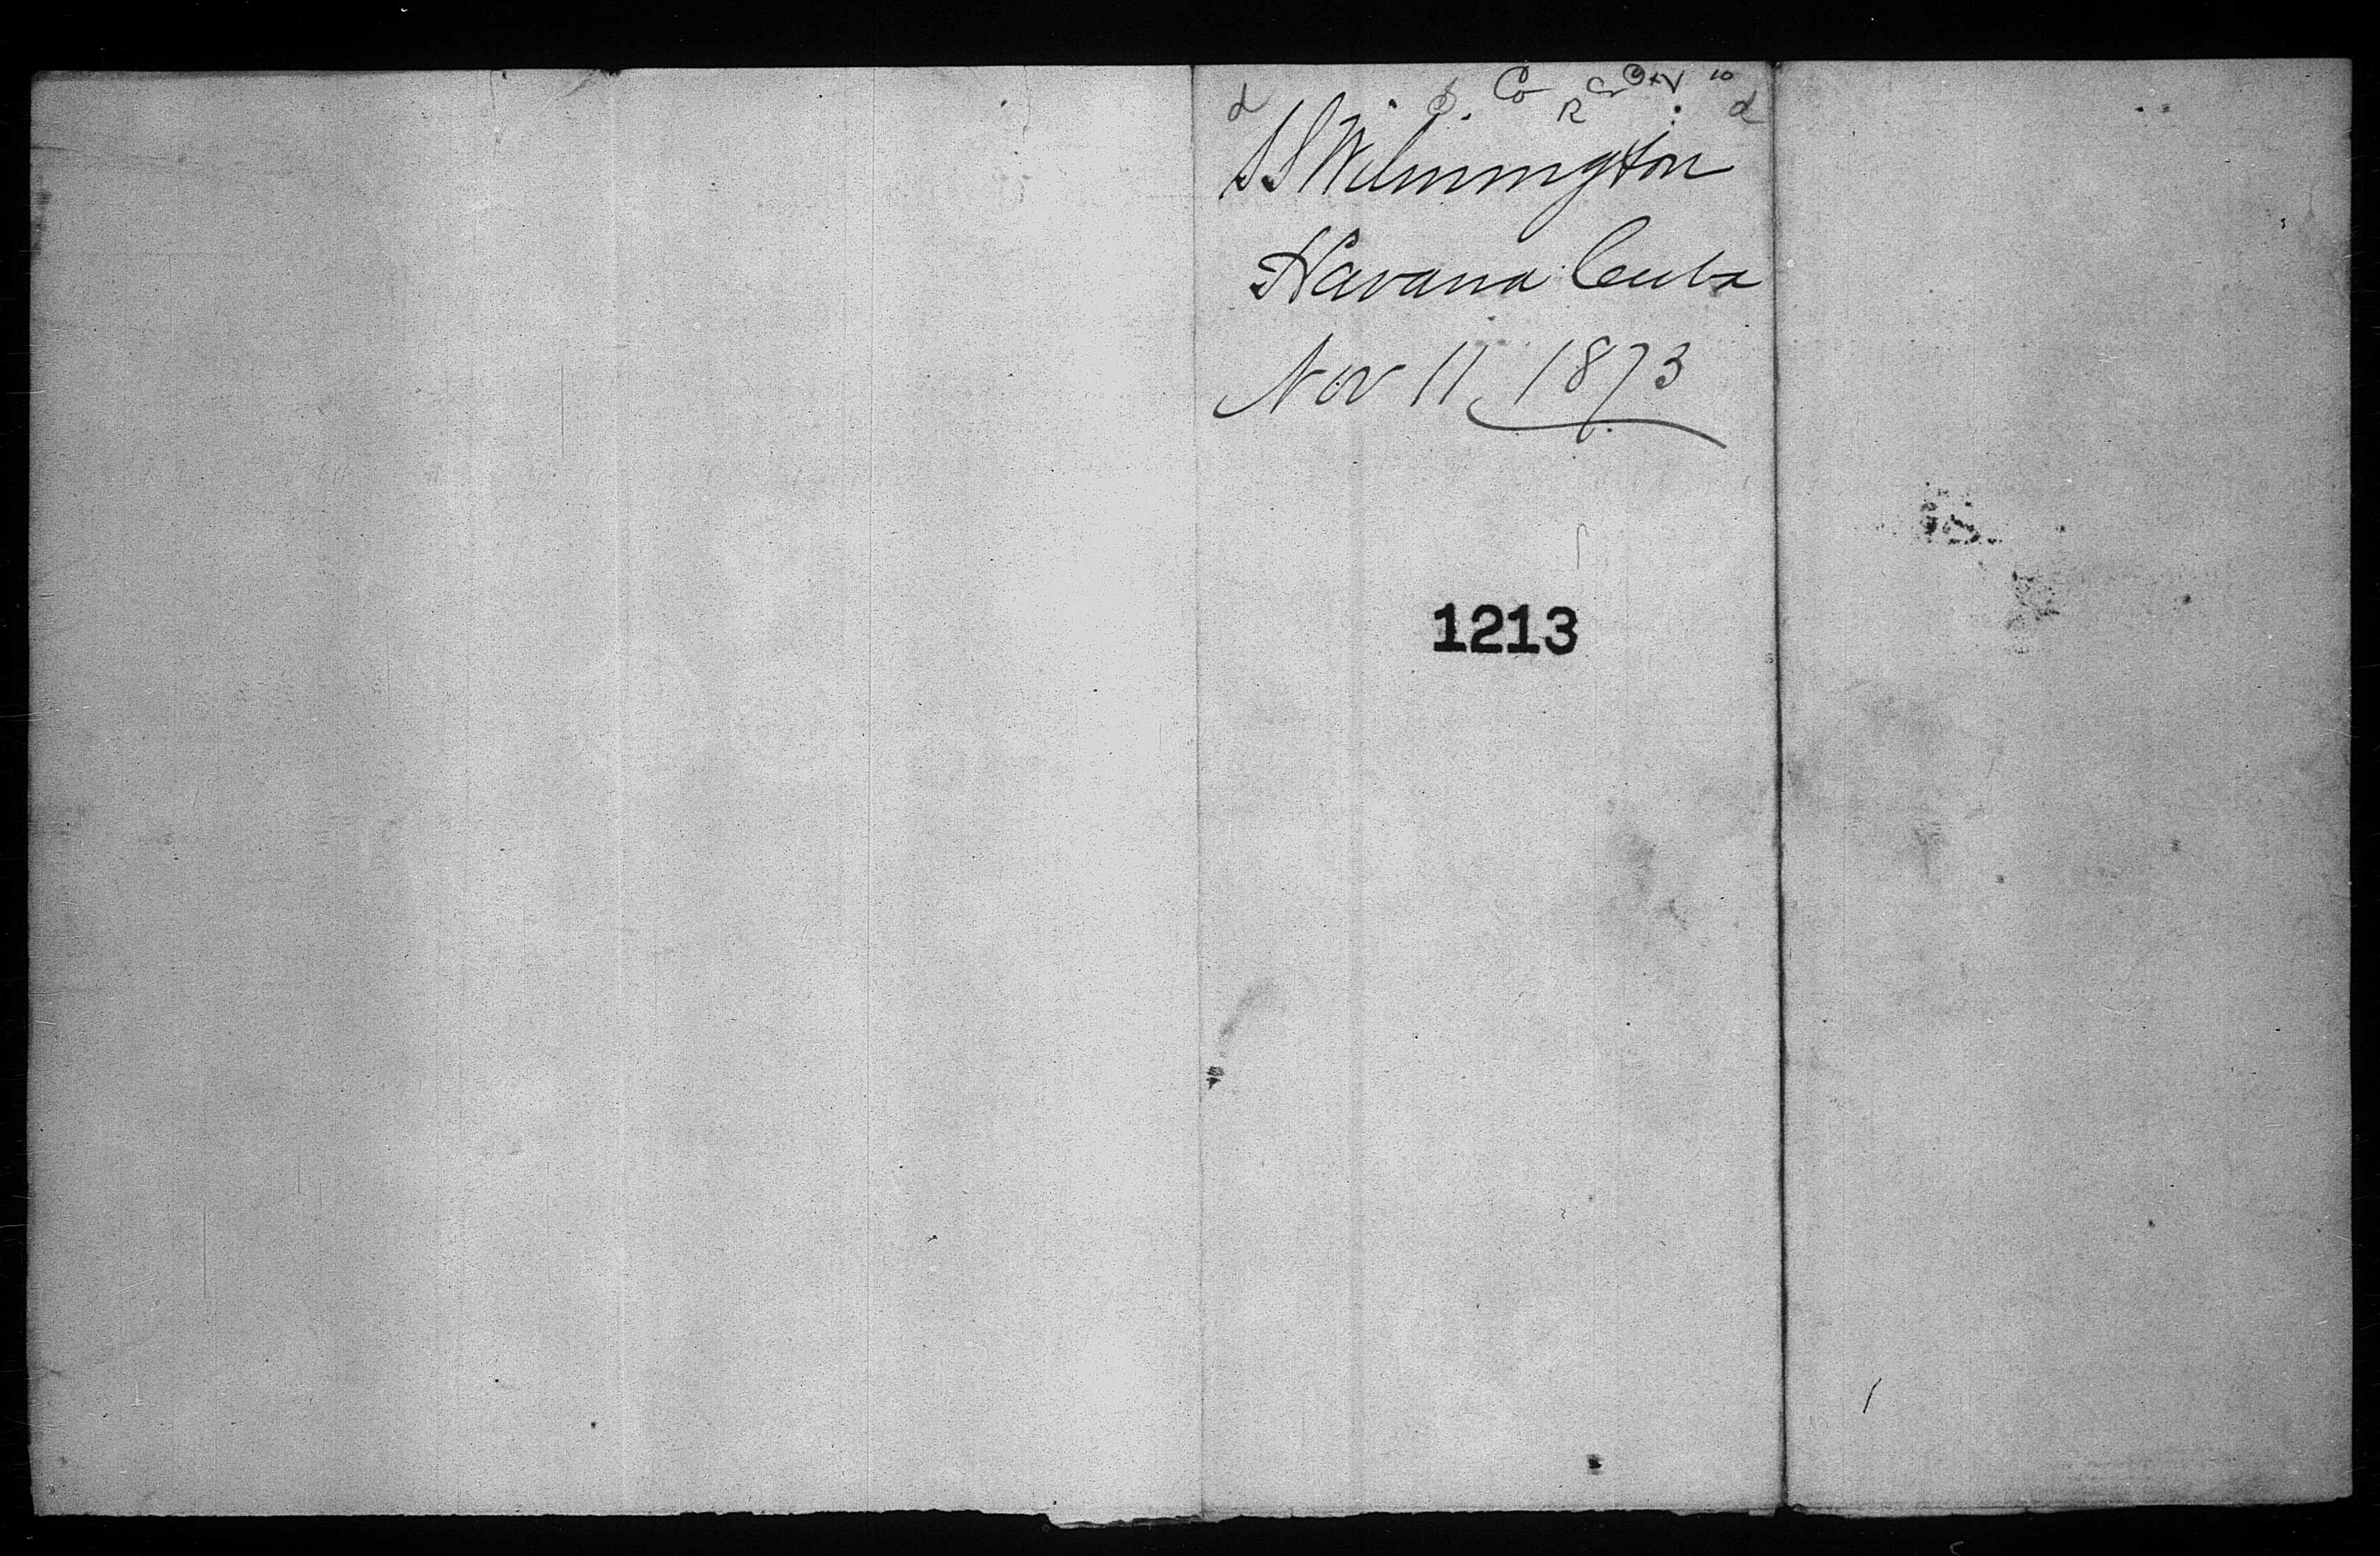 SS Wilmington
Havana Cuba
Nov 11 1873
1213